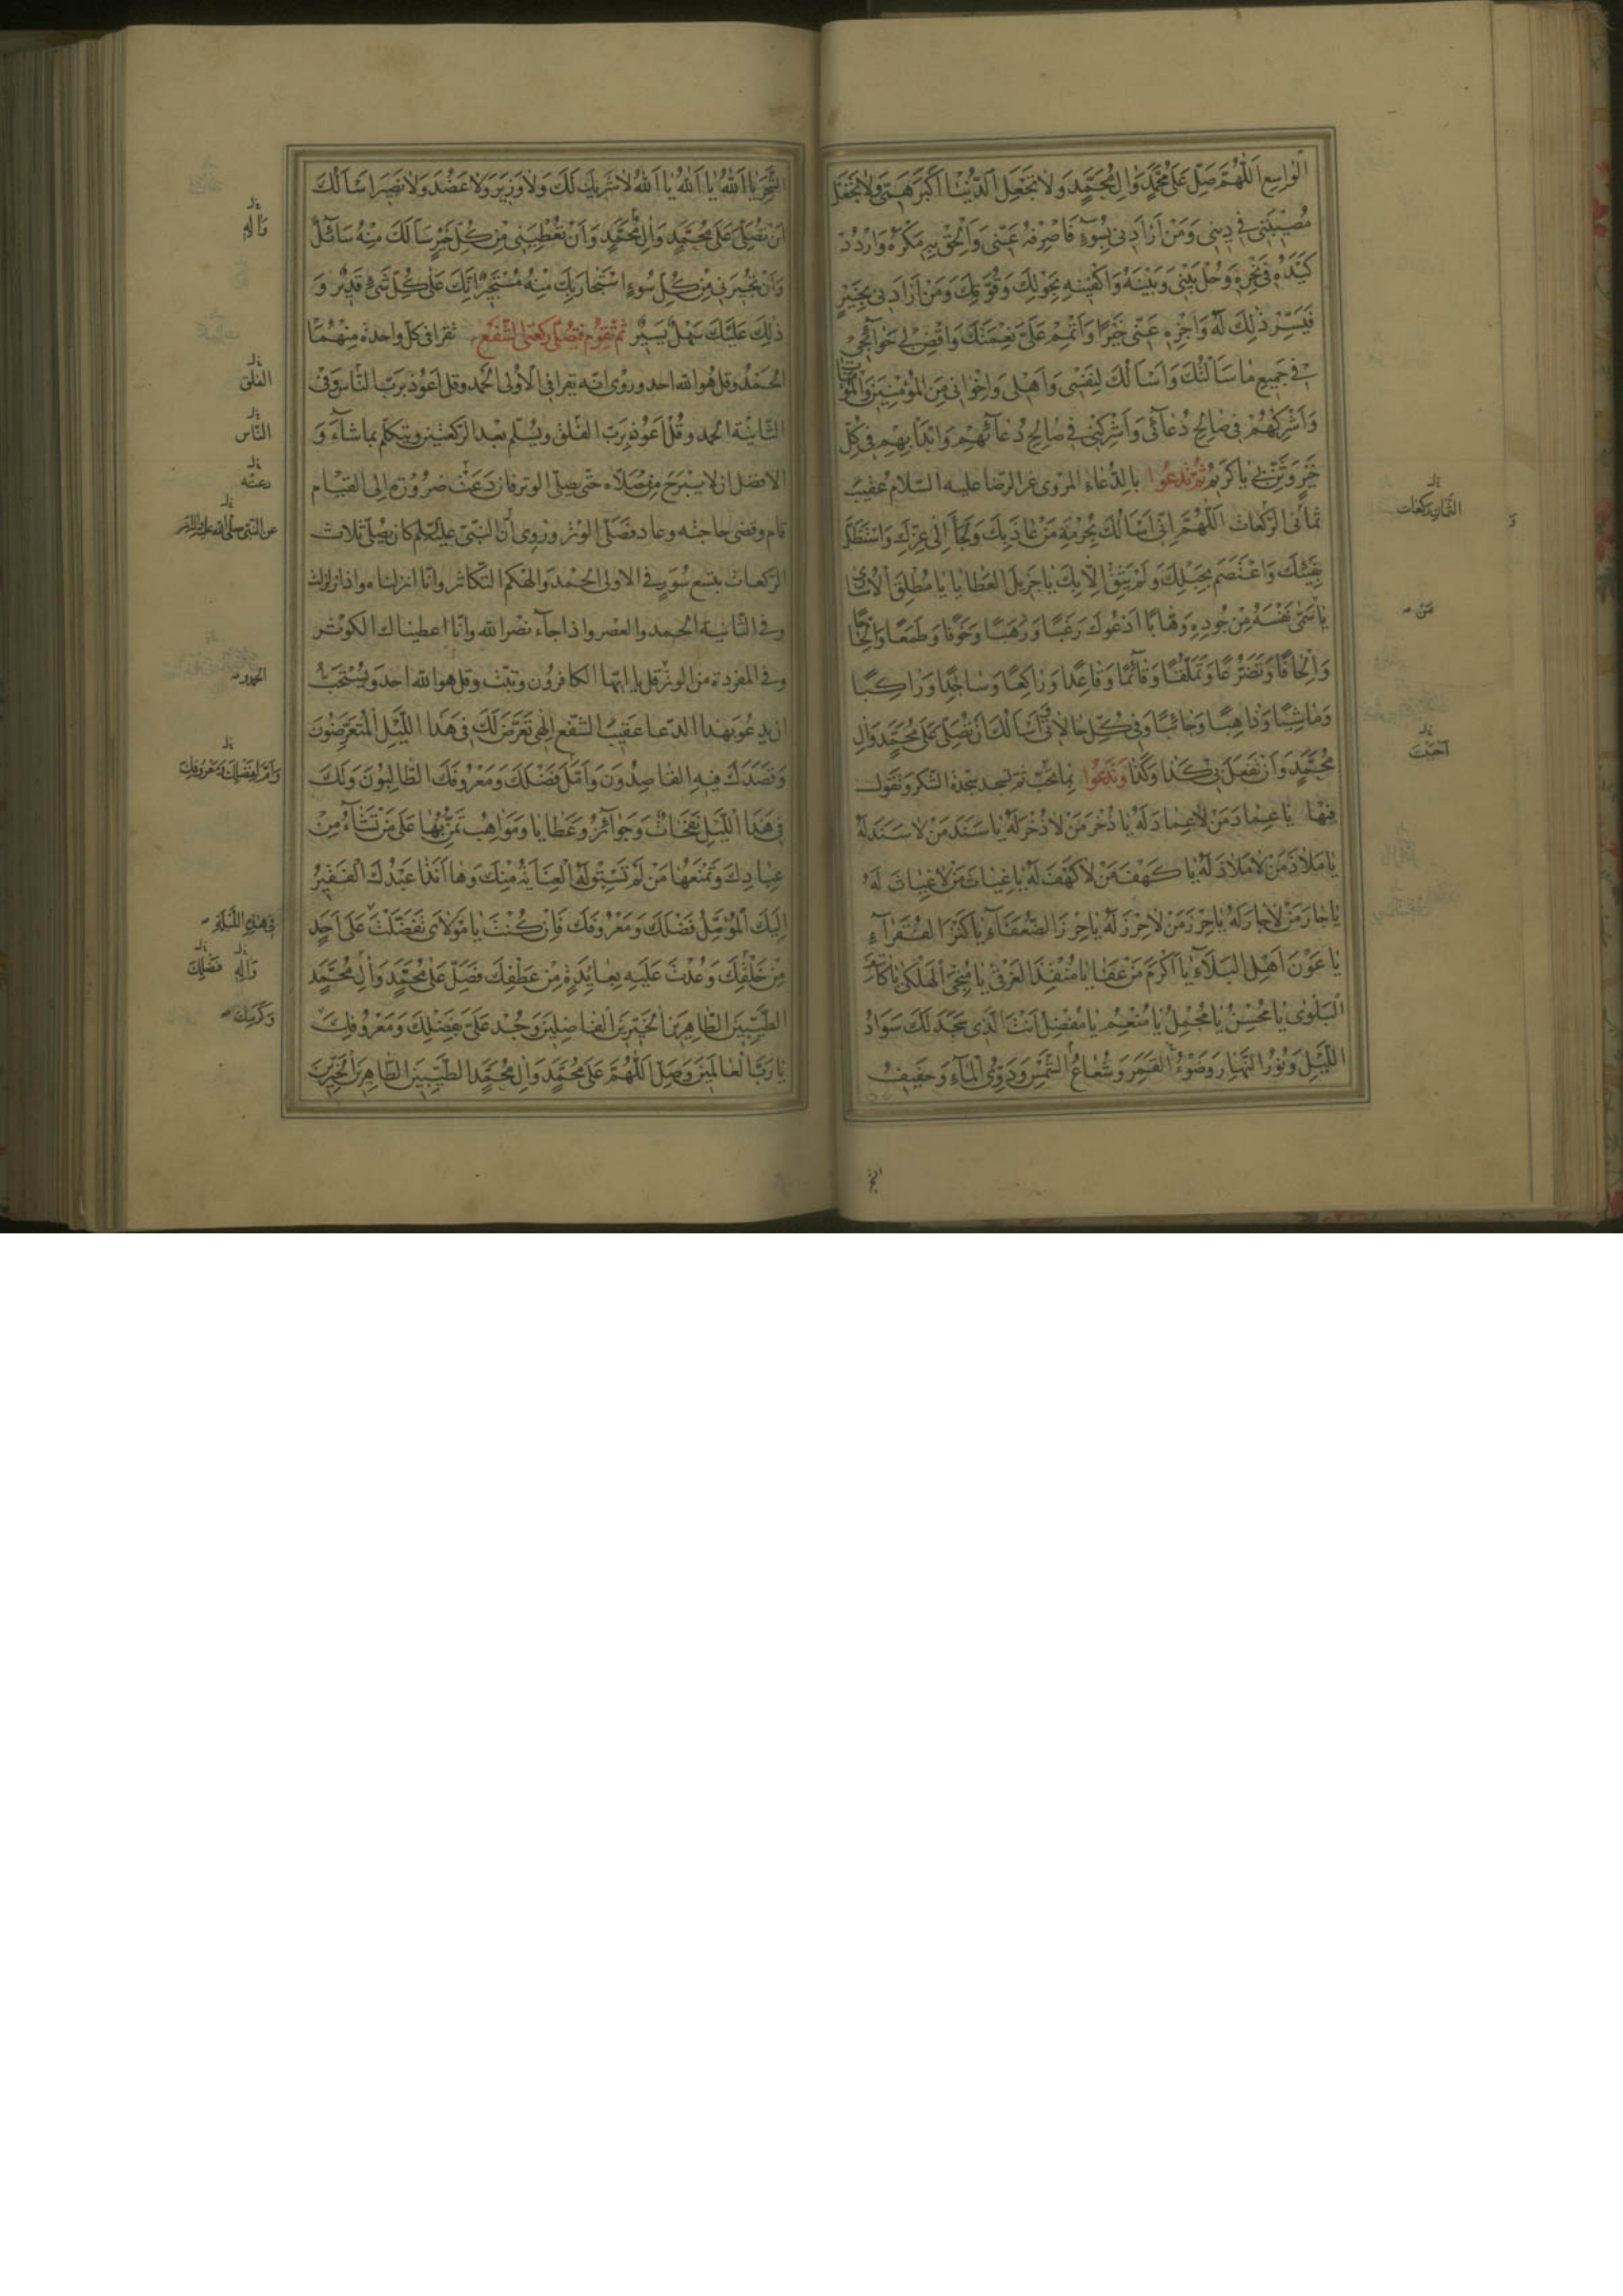 الْوَاسِعِ اَللّٰهُمَّ صَلِّ عَلٰى مُحَمَّدٍ وَاٰلِ مُحَمَّدٍ وَلَا تَجْعَلِ الدُّنْيَا اَكْبَرَ هَمّٖى وَلَا تَجْعَلْ
مُصٖيبَتٖى فٖى دٖينٖى وَمَنْ اَرَادَنٖى بِسُوٓءٍ فَاصْرِفْهُ عَنّٖى وَاَلْحِقْ بِهٖ مَكْرَهُ وَارْدُدْ
كَيْدَهُ فٖى نَحْرِهٖ وَحُلْ بَيْنٖى وَبَيْنَهُ وَاكْفِنٖيهِ بِحَوْلِكَ وَقُوَّتِكَ وَمَنْ اَرَادَنٖى بِخَيْرٍ
فَيَسِّرْ ذٰلِكَ لَهُ وَاجْزِهٖ عَنّٖى خَيْرًا وَاَتْمِمْ عَلَىَّ نِعْمَتَكَ وَاقْضِ لٖى حَوَآئِجٖى
فٖى جَمٖيعِ مٰا سَاَلْتُكَ وَاَسْاَلُكَ لِنَفْسٖى وَاَهْلٖى وَاِخْوَانٖى مِنَ الْمُؤْمِنٖينَ وَالْمُؤْمِنَاتِ
وَاَشْرِكْهُمْ فٖى صَالِحِ دُعَآئٖى وَاَشْرِكْنٖى فٖى صَالِحِ دُعَآئِهِمْ وَابْدَأْ بِهِمْ فٖى كُلِّ
خَيْرٍ وَثَنِّ بٖى يَا كَرٖيمُ ثُمَّ تَدْعُوا بالدُّعَاءِ المروى عن الرضا عليه السّلام عَقيبَ
ثمانى الرّكعات اَللّٰهُمَّ اِنّٖى اَسْاَلُكَ بِحُرْمَةِ مَنْ عَاذَ بِكَ وَلَجَأَ اِلٰى عِزِّكَ وَاسْتَظَلَّ
بِفَيْئِكَ وَاعْتَصَمَ بِحَبْلِكَ وَلَمْ يَثِقْ اِلَّا بِكَ يَا جَزٖيلَ الْعَطَايَا يَا مُطْلِقَ الْاُسَارٰى
يَا مَنْ سَمّٰى نَفْسَهُ مِنْ جُودِهٖ وَهَّابًا اَدْعُوكَ رَغَبًا وَرَهَبًا وَخَوْفًا وَطَمَعًا وَاِلْحَاحًا
وَاِلْحَافًا وَتَضَرُّعًا وَتَمَلُّقًا وَقَآئِمًا وَقَاعِدًا وَرَاكِعًا وَسَاجِدًا وَرَاكِبًا
وَمَاشِيًا وَذَاهِبًا وَجَائِيًا وَفٖى كُلِّ حَالَاتٖى اَسْاَلُكَ اَنْ تُصَلِّىَ عَلٰى مُحَمَّدٍ وَاٰلِ
مُحَمَّدٍ وَاَنْ تَفْعَلَ بٖى كَذَا وَكَذَا وَتَدْعُوا بِمَا تُحِبّ ثم تسجد سجدة الشكر وتقول
فيها يَا عِمَادَ مَنْ لَا عِمَادَ لَهُ يَا ذُخْرَ مَنْ لَا ذُخْرَ لَهُ يَا سَنَدَ مَنْ لَا سَنَدَ لَهُ
يَا مَلَاذَ مَنْ لَا مَلَاذَ لَهُ يَا كَهْفَ مَنْ لَا كَهْفَ لَهُ يَا غِيَاثَ مَنْ لَا غِيَاثَ لَهُ
يَا جَارَ مَنْ لَا جَارَ لَهُ يَا حِرْزَ مَنْ لَا حِرْزَ لَهُ يَا حِرْزَ الضُّعَفَآءِ يَا كَنْزَ الْفُقَرَآءِ
يَا عَوْنَ اَهْلِ الْبَلَآءِ يَا اَكْرَمَ مَنْ عَفَا يَا مُنْقِذَ الْغَرْقٰى يَا مُنْجِىَ الْهَلْكٰى يَا كَاشِفَ
الْبَلْوٰى يَا مُحْسِنُ يَا مُجْمِلُ يَا مُنْعِمُ يَا مُفْضِلُ اَنْتَ الَّذٖى سَجَدَ لَكَ سَوَادُ
اللَّيْلِ وَنُورُ النَّهَارِ وَضَوْءُ الْقَمَرِ وَشُعَاعُ الشَّمْسِ وَدَوِىُّ الْمَآءِ وَحَفٖيفُ
الثمان ركعات
مَنْ
اَحْبَبْتَ
الشَّجَرِ يَا اَللّٰهُ يَا اَللّٰهُ يَا اَللّٰهُ لَا شَرٖيكَ لَكَ وَلَا وَزٖيرَ وَلَا عَضُدَ وَلَا نَصٖيرَ اَسْاَلُكَ
اَنْ تُصَلِّىَ عَلٰى مُحَمَّدٍ وَاٰلِ مُحَمَّدٍ وَاَنْ تُعْطِيَنٖى مِنْ كُلِّ خَيْرٍ سَاَلَكَ مِنْهُ سَآئِلٌ
وَاَنْ تُجٖيرَنٖى مِنْ كُلِّ سُوءٍ اسْتَجَارَ بِكَ مِنْهُ مُسْتَجٖيرٌ اِنَّكَ عَلٰى كُلِّ شَىْءٍ قَدٖيرٌ وَ
ذٰلِكَ عَلَيْكَ سَهْلٌ يَسٖيرٌ ثُمَّ تَقُومُ فَتُصَلّى رَكْعَتَى الشَّفْعِ تقرا فى كلّ واحدة منهما
الحمد وقل هو الله احد وروى انّه يقرا فى الاولى الحمد وقل اعوذ بربّ النّاس وفى
الثّانية الحمد وقل اَعُوذ بِرَبّ الفلق ويُسلّم بعد الرّكعتين ويتكلّم بما شآءَ وَ
الافضل ان لا يبرح من مصلّاه حتّى يصلّى الوتر فان دعت ضرورة الى القيام
قام وقضى حاجته وعاد فصلّى الوتر وروى ان النّبىّ عليه السلم كان يصلّى ثلاث
الرّكعات بتسع سُوَر فى الاولى الحمد والهٰكم التّكاثر وانّا انزلناه واذا زلزلت
وفى الثّانية الحمد والعصر واذا جآء نصر الله وانّا اعطيناك الكوثر
وفى المفردة من الوتر قل يا ايّها الكافرون وتبّت وقل هو الله احد ويُسْتحبّ
ان يدعُو بهذا الدّعا عقيب الشّفع اِلٰهٖى تَعَرَّضَ لَكَ فٖى هٰذَا اللَّيْلِ الْمُتَعَرِّضُونَ
وَقَصَدَكَ فٖيهِ الْقَاصِدُونَ وَاَمَّلَ فَضْلَكَ وَمَعْرُوفَكَ الطَّالِبُونَ وَلَكَ
فٖى هٰذَا اللَّيْلِ نَفَحَاتٌ وَجَوَآئِزُ وَعَطَايَا وَمَوَاهِبُ تَمُنُّ بِهَا عَلٰى مَنْ تَشَآءُ مِنْ
عِبَادِكَ وَتَمْنَعُهَا مَنْ لَمْ تَسْبِقْ لَهُ الْعِنَايَةُ مِنْكَ وَهَا اَنَذَا عَبْدُكَ الْفَقٖيرُ
اِلَيْكَ الْمُؤَمِّلُ فَضْلَكَ وَمَعْرُوفَكَ فَاِنْ كُنْتَ يَا مَوْلَاىَ تَفَضَّلْتَ عَلٰى اَحَدٍ
مِنْ خَلْقِكَ وَعُدْتَ عَلَيْهِ بِعَايِدَةٍ مِنْ عَطْفِكَ فَصَلِّ عَلٰى مُحَمَّدٍ وَاٰلِ مُحَمَّدٍ
الطَّيِّبٖينَ الطَّاهِرٖينَ الْخَيِّرٖينَ الْفَاضِلٖينَ وَجُدْ عَلَىَّ بِفَضْلِكَ وَمَعْرُوفِكَ
يَا رَبَّ الْعَالَمٖينَ وَصَلِّ اَللّٰهُمَّ عَلٰى مُحَمَّدٍ وَاٰلِ مُحَمَّدٍ الطَّيِّبٖينَ الطَّاهِرٖينَ الْخَيِّرٖينَ
وَاٰلِهٖ
الفلق
النّاس
دعته
عن النّبى صلّى الله عليه واٰله
الحمد
وَاَمَّلَ فَضْلَكَ وَمَعْرُوفَكَ
فٖى هٰذِهِ اللَّيْلَةِ
وَاٰلِهٖ فَضْلِكَ
وَكَرَمِكَ